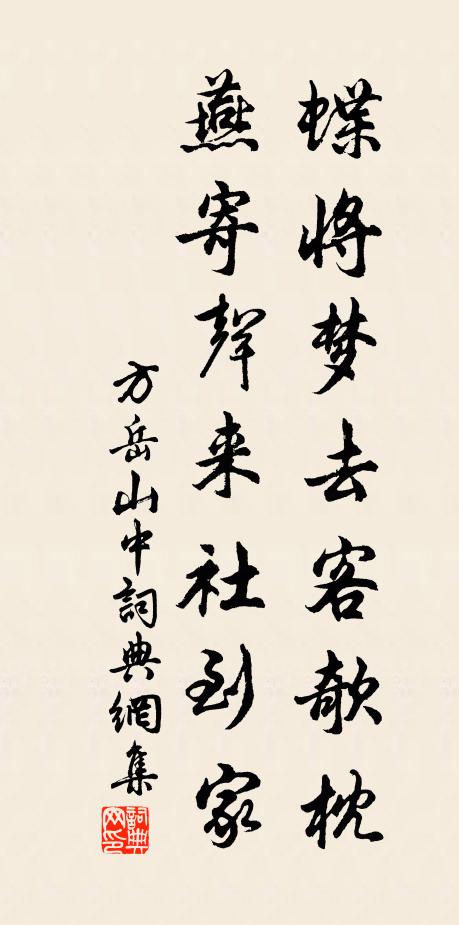 蝶将梦去客欹枕
燕寄聲来社到家
方岳山中詞典網集
詞典
网印